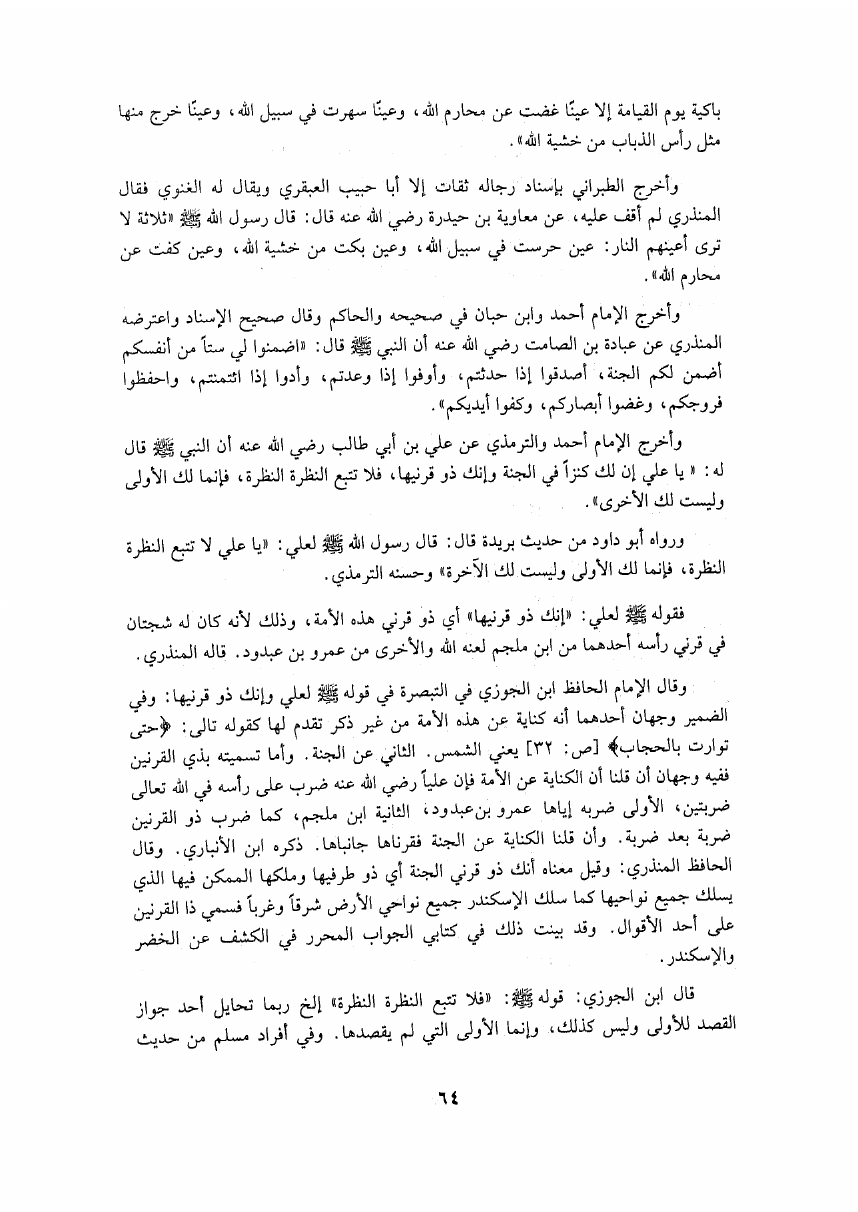 باكية يوم القيامة إلا عينًا غضت عن محارم الله، وعينًا سهرت في سبيل الله، وعينًا خرج منها
مثل رأس الذباب من خشية الله».
وأخرج الطبراني بإسناد رجاله ثقات إلا أبا حبيب العبقري ويقال له الغنوي فقال
المنذري لم أقف عليه، عن معاوية بن حيدرة رضي الله عنه قال: قال رسول الله ﷺ «ثلاثة لا
ترى أعينهم النار: عين حرست في سبيل الله، وعين بكت من خشية الله، وعين كفت عن
محارم الله».
وأخرج الإمام أحمد وابن حبان في صحيحه والحاكم وقال صحيح الإسناد واعترضه
المنذري عن عبادة بن الصامت رضي الله عنه أن النبي ﷺ قال: «اضمنوا لي ستاً من أنفسكم
أضمن لكم الجنة، أصدقوا إذا حدثتم، وأوفوا إذا وعدتم، وأدوا إذا ائتمنتم، واحفظوا
فروجكم، وغضوا أبصاركم، وكفوا أيديكم».
وأخرج الإمام أحمد والترمذي عن علي بن أبي طالب رضي الله عنه أن النبي ﷺ قال
له: « يا علي إن لك كنزاً في الجنة وإنك ذو قرنيها، فلا تتبع النظرة النظرة، فإنما لك الأولى
وليست لك الأخرى».
ورواه أبو داود من حديث بريدة قال: قال رسول الله ﷺ لعلي: «يا علي لا تتبع النظرة
النظرة، فإنما لك الأولى وليست لك الآخرة» وحسنه الترمذي.
فقوله ﷺ لعلي: «إنك ذو قرنيها» أي ذو قرني هذه الأمة، وذلك لأنه كان له شجتان
في قرني رأسه أحدهما من ابن ملجم لعنه الله والأخرى من عمرو بن عبدود. قاله المنذري.
وقال الإمام الحافظ ابن الجوزي في التبصرة في قوله ﷺ لعلي وإنك ذو قرنيها: وفي
الضمير وجهان أحدهما أنه كناية عن هذه الأمة من غير ذكر تقدم لها كقوله تالى: ﴿حتى
توارت بالحجاب﴾ [ص: ٣٢] يعني الشمس. الثاني عن الجنة. وأما تسميته بذي القرنين
ففيه وجهان أن قلنا أن الكناية عن الأمة فإن علياً رضي الله عنه ضرب على رأسه في الله تعالى
ضربتين، الأولى ضربه إياها عمرو بن عبدود، الثانية ابن ملجم، كما ضرب ذو القرنين
ضربة بعد ضربة. وأن قلنا الكناية عن الجنة فقرناها جانباها. ذكره ابن الأنباري. وقال
الحافظ المنذري: وقيل معناه أنك ذو قرني الجنة أي ذو طرفيها وملكها الممكن فيها الذي
يسلك جميع نواحيها كما سلك الإسكندر جميع نواحي الأرض شرقاً وغرباً فسمي ذا القرنين
على أحد الأقوال. وقد بينت ذلك في كتابي الجواب المحرر في الكشف عن الخضر
والإسكندر.
قال ابن الجوزي: قوله ﷺ: «فلا تتبع النظرة النظرة» إلخ ربما تحايل أحد جواز
القصد للأولى وليس كذلك، وإنما الأولى التي لم يقصدها. وفي أفراد مسلم من حديث
٦٤